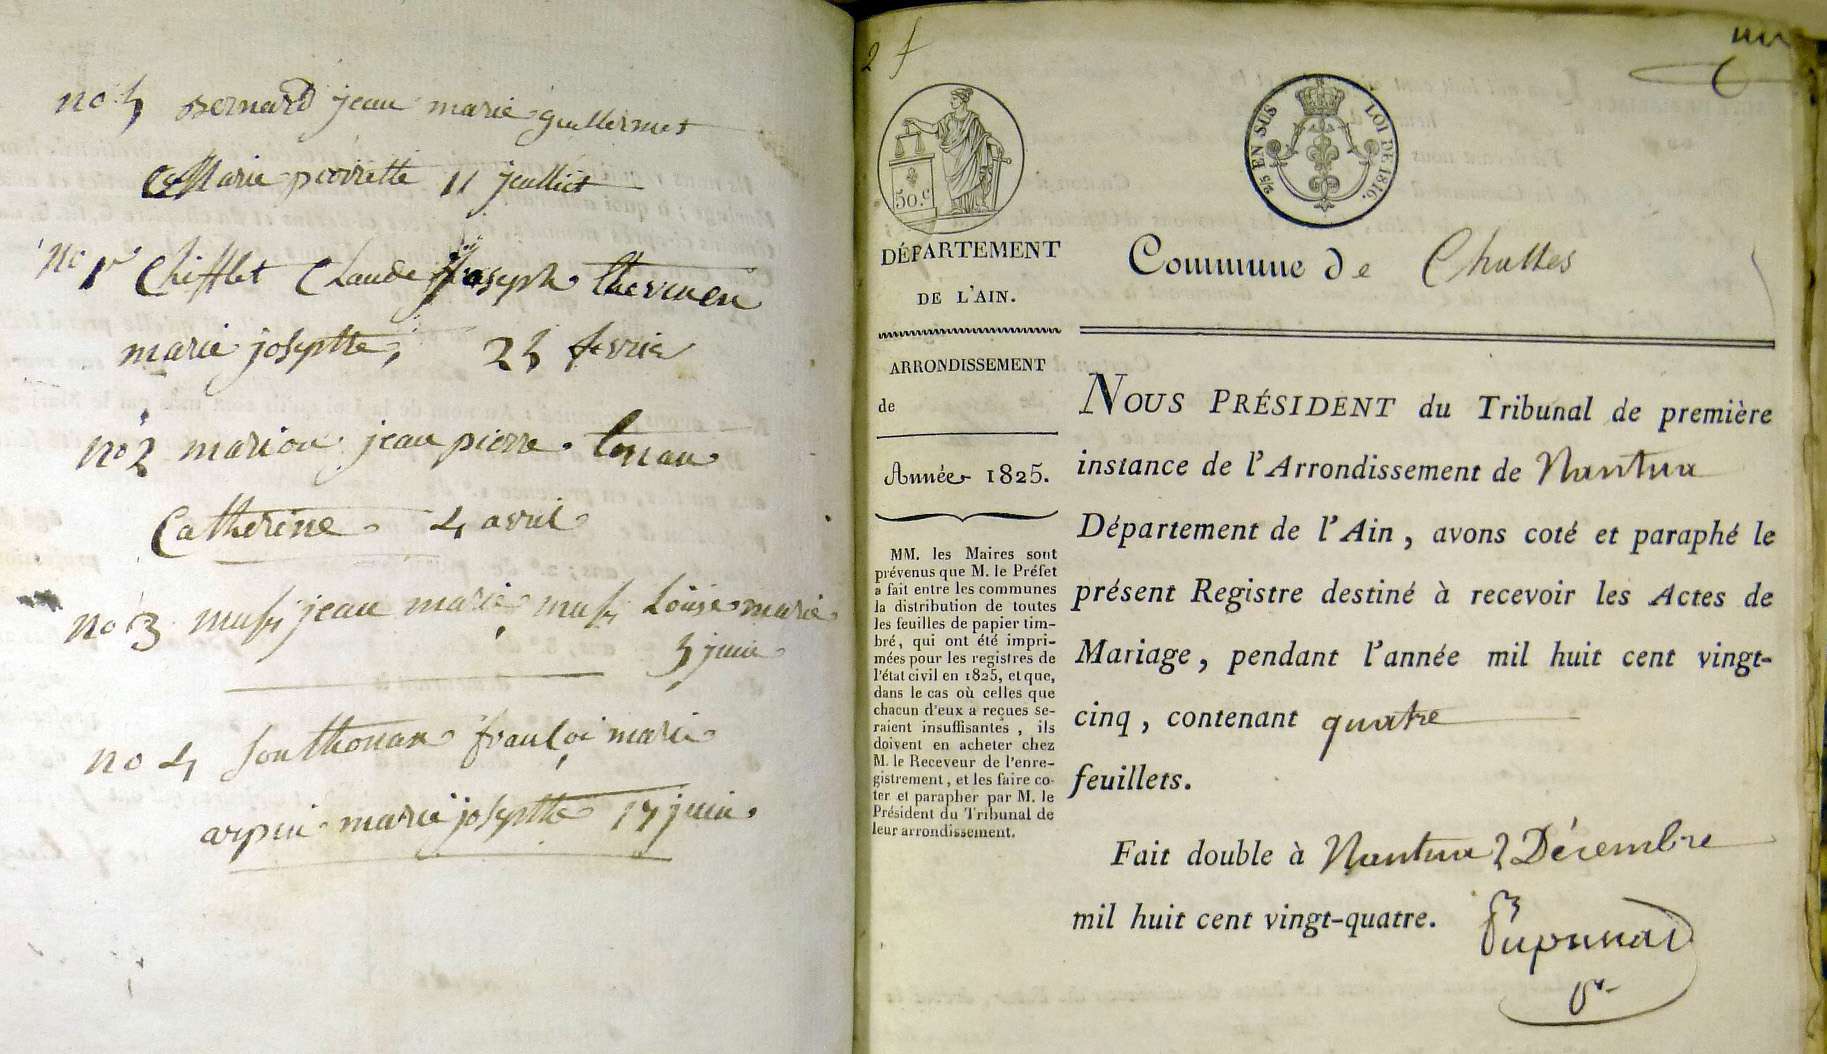 no 5 Bernard jean marie guillermet
Marie pierrette 11 juillet
no 1er Chifflet Claude joseph thevenen
marie josephtte, 25 fevrie
no 2 marion jean pierre tonan
Catherine 4 avril
no 3 jean marie Louise marie
5 juin
no 4 Southonan françoi marie
arpin marie josephtte 17 juin
2 f
50.c
2/5 EN SUS LOI DE 1816.
DÉPARTEMENT
DE L'AIN.
ARRONDISSEMENT
de
Année 1825.
MM. les Maires sont
prévenus que M. le Préfet
a fait entre les communes
la distribution de toutes
les feuilles de papier tim-
bré, qui ont été impri-
mées pour les registres de
l'état civil en 1825, et que,
dans le cas où celles que
chacun d'eux a reçues se-
raient insuffisantes, ils
doivent en acheter chez
M. le Receveur de l'enre-
gistrement, et les faire co-
ter et parapher par M. le
Président du Tribunal de
leur arrondissement.
Commune de Challes
NOUS PRÉSIDENT du Tribunal de première
instance de l'Arrondissement de Nantua
Département de l'Ain, avons coté et paraphé le
présent Registre destiné à recevoir les Actes de
Mariage, pendant l'année mil huit cent vingt-
cinq, contenant quatre
feuillets.
Fait double à Nantua 2 Décembre
mil huit cent vingt-quatre.